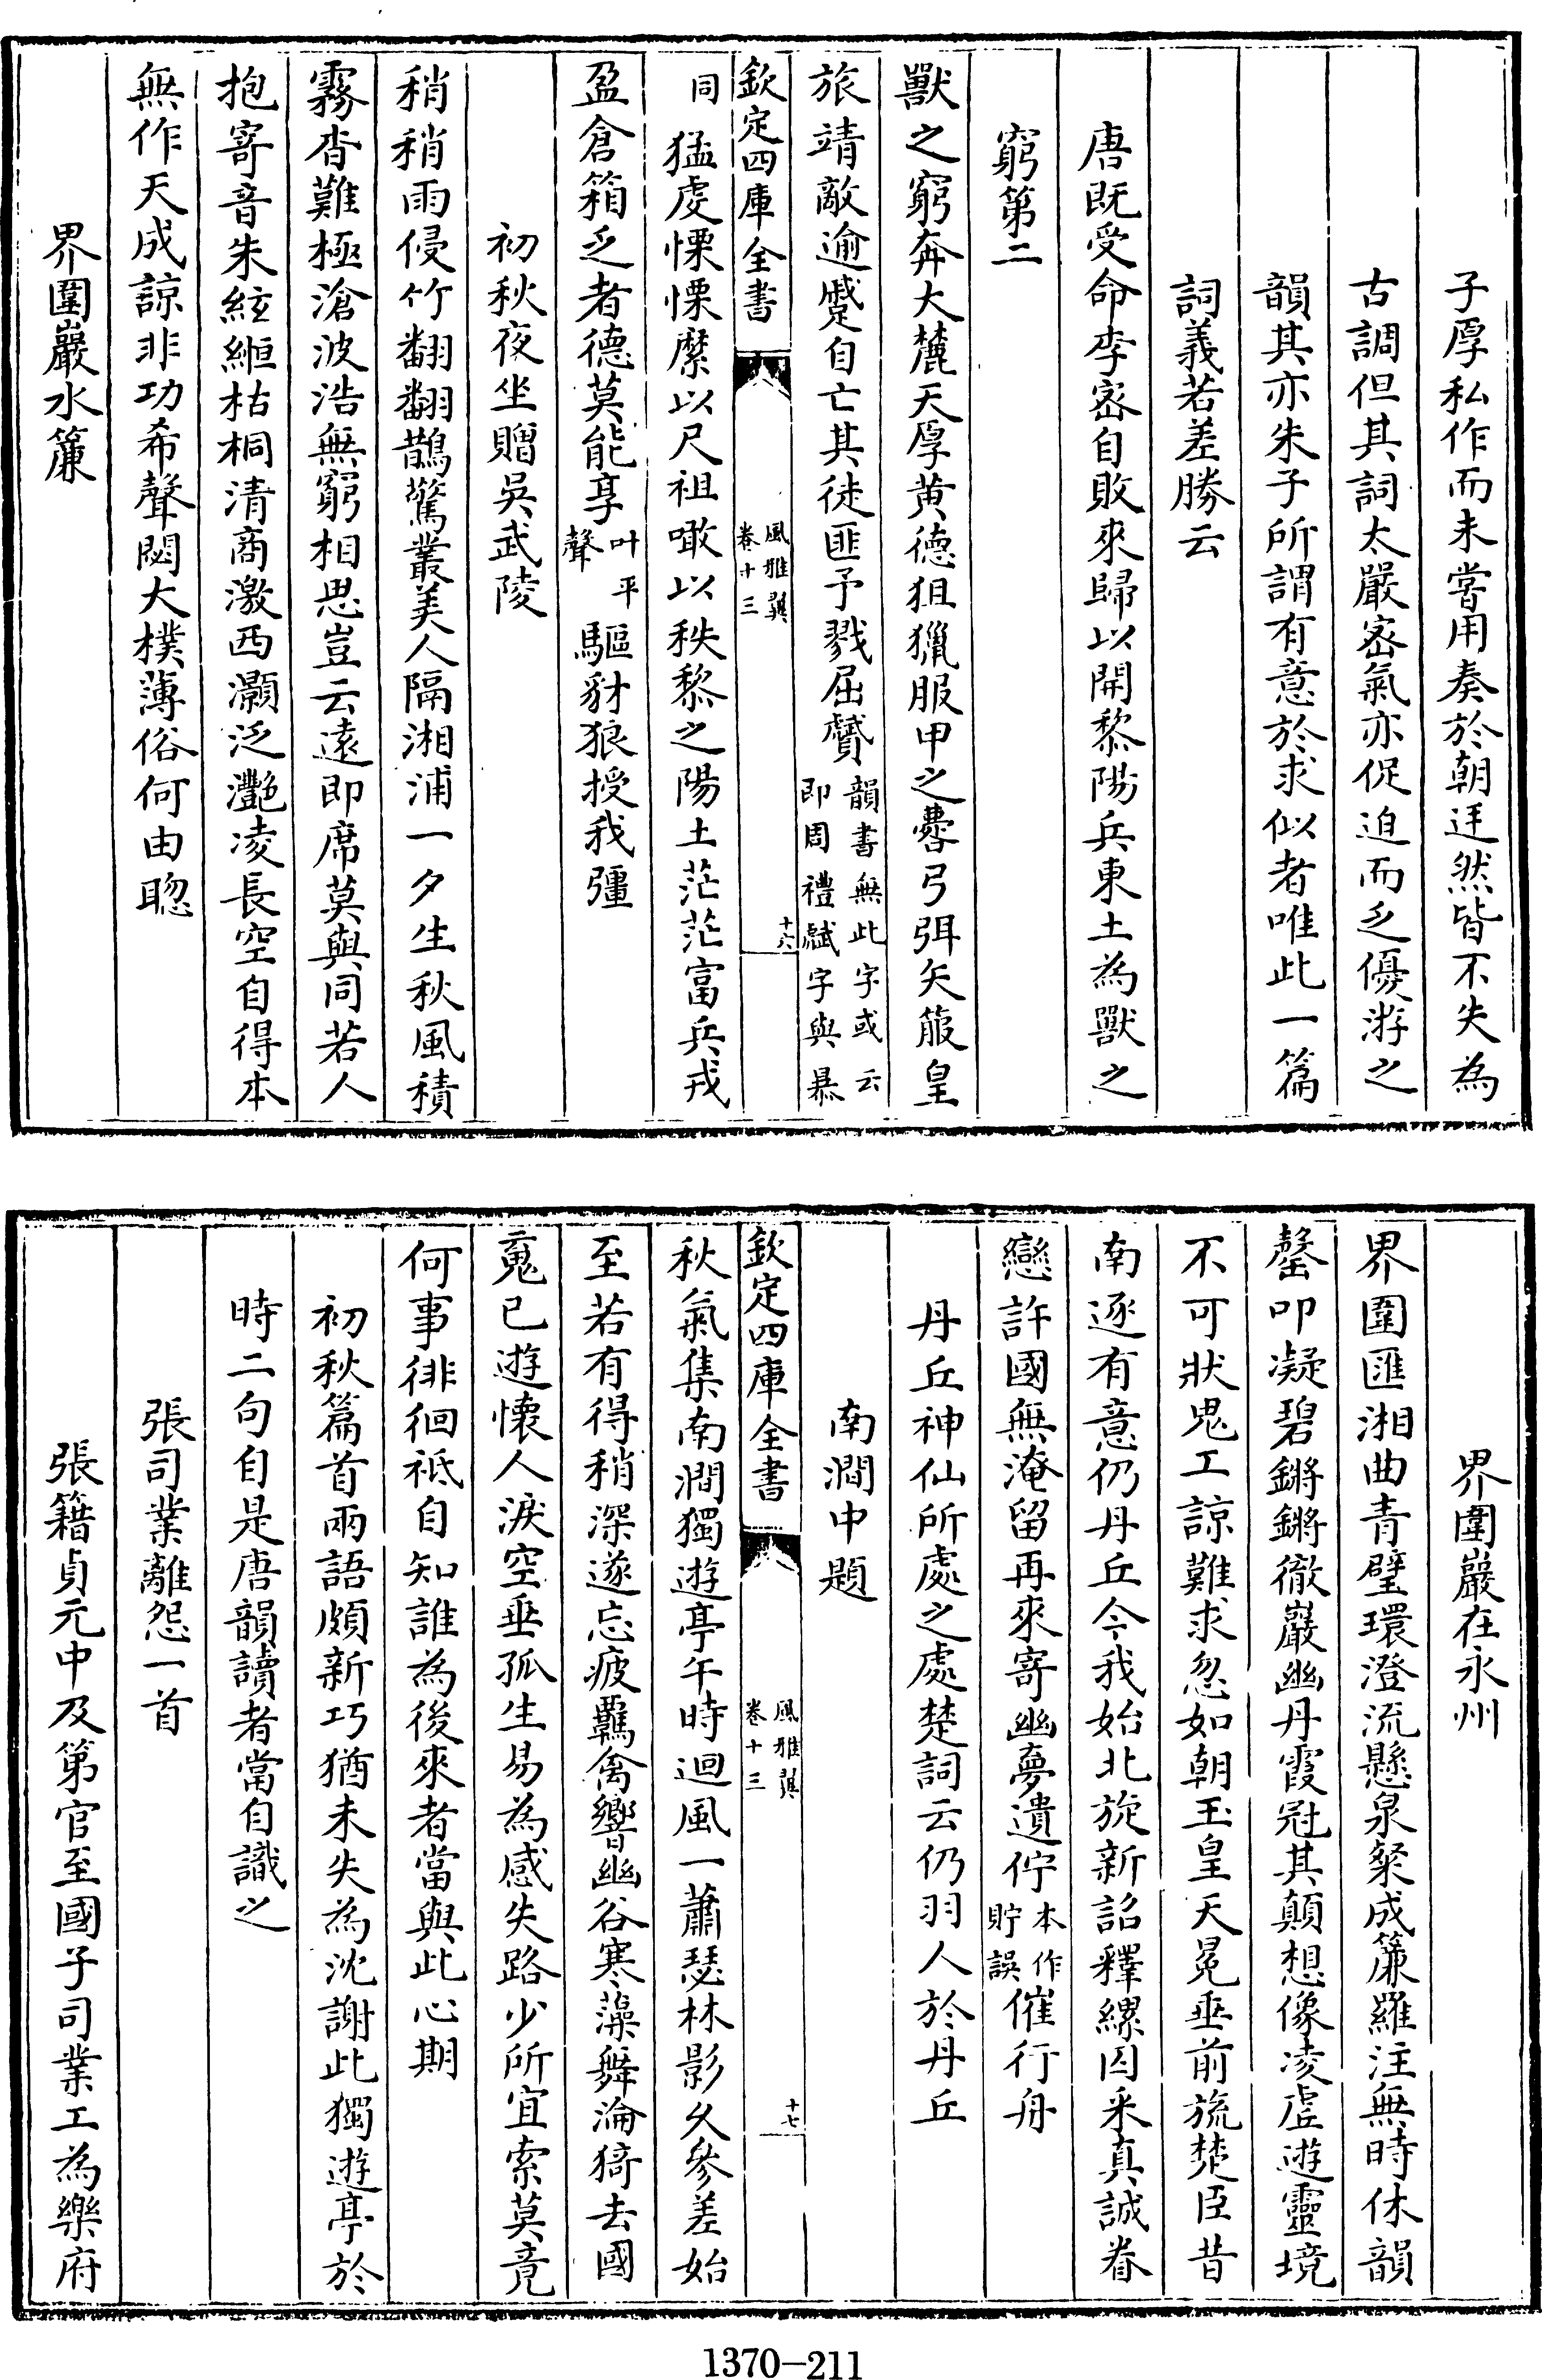 子厚私作而未嘗用奏於朝廷然皆不失為
古調但其詞太嚴宻氣亦促迫而乏優游之
韻其亦朱子所謂有意於求似者唯此一篇
詞義若差勝云
唐既受命李宻自敗來歸以開黎陽兵東土為獸之
窮第二
獸之窮奔大麓天厚黄德狙獷服甲之櫜弓弭矢箙皇
旅靖敵逾蹙自亡其徒匪予戮屈贙韻書無此字或云即周禮虣字與暴
欽定四庫全書
風雅翼
卷十三
十六
同猛虔慄慄縻以尺祖噉以秩黎之陽土茫茫富兵戎
盈倉箱乏者德莫能享叶平聲驅豺狼授我彊
初秋夜坐贈吳武陵
稍稍雨侵竹翻翻鵲驚叢美人隔湘浦一夕生秋風積
霧杳難極滄波浩無窮相思豈云遠即席莫與同若人
抱竒音朱絃緪枯桐清商激西灝泛灧凌長空自得本
無作天成諒非功希聲閟大樸薄俗何由聰
界圍巖水簾
界圍巖在永州
界圍匯湘曲青壁環澄流懸泉粲成簾羅注無時休韻
罄叩凝碧鏘鏘徹巖幽丹霞冠其顛想像凌虛遊靈境
不可狀鬼工諒難求忽如朝玉皇天冕垂前旒楚臣昔
南逐有意仍丹丘今我始北旋新詔釋縲囚采真誠眷
戀許國無淹留再來寄幽夢遺佇本作貯誤催行舟
丹丘神仙所處之處楚詞云仍羽人於丹丘
南澗中題
欽定四庫全書
風雅翼
卷十三
十七
秋氣集南澗獨遊亭午時迴風一蕭瑟林影久參差始
至若有得稍深遂忘疲羈禽響幽谷寒藻舞淪猗去國
䰟已遊懷人淚空垂孤生易為感失路少所宜索莫竟
何事徘徊祗自知誰為後來者當與此心期
初秋篇首兩語頗新巧猶未失為沈謝此獨遊亭於
時二句自是唐韻讀者當自識之
張司業離怨一首
張籍貞元中及第官至國子司業工為樂府
1370-211